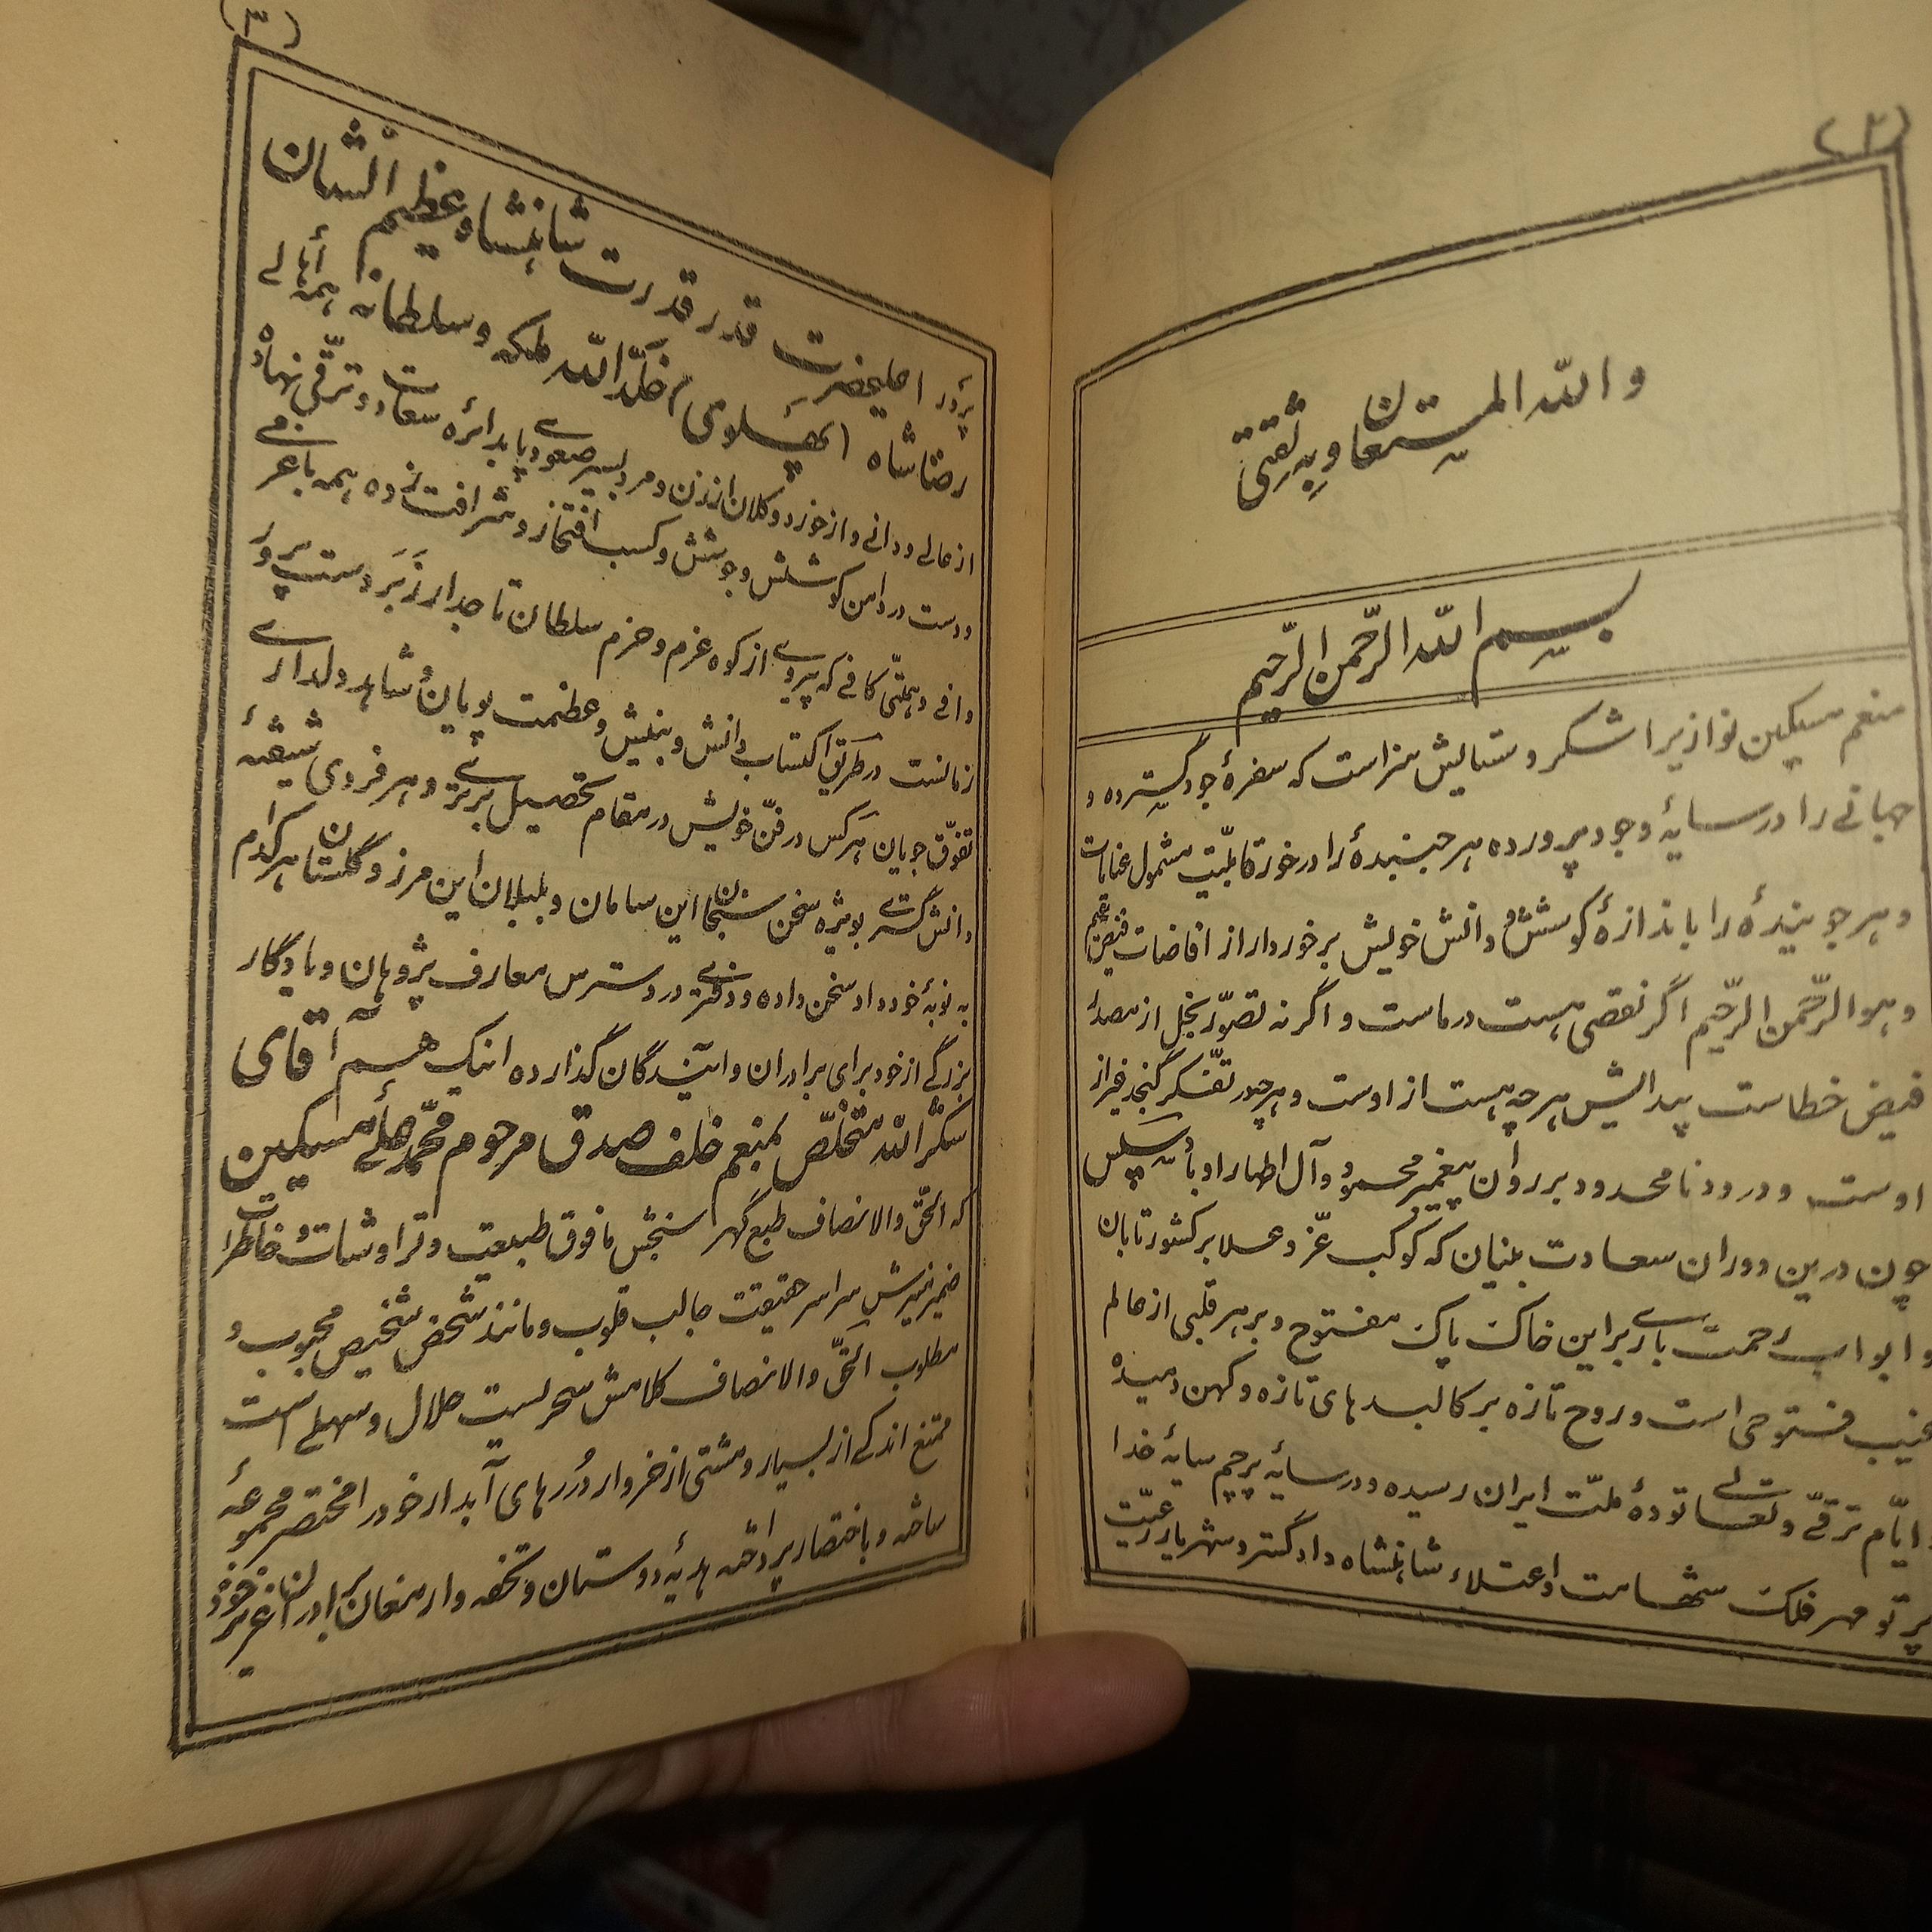 (۲)
والله المستعان وبه ثقتی
بسم الله الرّحمن الرّحیم
منعم مسکین نوازیرا شکر و ستایش سزاست که سفرهٔ جود گسترده و
جهانے را در سایهٔ وجود پرورده هر جنبندهٔ را در خور قابلیّت مشمول عنایات
و هر جویندهٔ را باندازهٔ کوشش و دانش خویش برخوردار از افاضات فیض عمیم
و هو الرّحمن الرّحیم اگر نقصی هست در ماست و اگر نه تصوّر بخل از مصدر
فیض خطاست پیدایش هر چه هست از اوست و هر چه در تفکّر گنجد فراز
اوست و درود نامحدود بر روان پیغمبر محمود و آل اطهار او باد سپس
چون درین دوران سعادت بنیان که کوکب عزّ و علا بر کشور تابان
و ابواب رحمت بارے بر این خاک پاک مفتوح و بر هر قلبی از عالم
غیب فتوحی است و روح تازه بر کالبدهای تازه و کهن دمیده
و ایّام ترقّے و تعالے تودهٔ ملّت ایران رسیده و در سایهٔ پرچم سایهٔ خدا
پرتو مهر فلک شهامت و اعتلاء شاهنشاه دادگستر و شهریار رعیّت
(۳)
پرور اعلیحضرت قدر قدرت شاهنشاه عظیم الشان
رضا شاه پهلوی خلّد الله ملکه و سلطانه همه أهالے
از عالے و دانے و از خورد و کلان از زن و مرد بسیر صعودے پا بدائره سعادت و ترقّی نهاده
و دست در دامن کوشش و جوشش و کسب افتخار و شرافت زده همه با عزمے
وافے و همّتی کافے که پیروے از کوه عزم و حزم سلطان تاجدار زبردست پرور
زمانست در طریق اکتساب دانش و بینش و عظمت پویان و شاهد دلدارے
تفوّق جویان هر کس در فنّ خویش در مقام تحصیل برترے و هر فردی شیفتهٔ
دانش گسترے بویژه سخن سنجان این سامان و بلبلان این مرز و گلستان هر کدام
به نوبهٔ خود داد سخن داده و دفترے در دسترس معارف پژوهان و یادگار
بزرگے از خود برای برادران و آیندگان گذارده اینک هم آقای
شکر الله متخلّص بمنعم خلف صدق مرحوم محمّد علے مسکین
که الحقّ والانصاف طبع گهر سنجش مافوق طبیعت و تراوشات و خاطرات
ضمیر منیرش سراسر حقیقت جالب قلوب و مانند شخص شخیص محبوب و
مطلوب الحقّ والانصاف کلامش سحریست حلال و سهلے است
ممتنع اندکے از بسیار و مشتی از خروار دُررهای آبدار خود را مختصر مجموعهٔ
ساخته و باختصار پرداخته هدیهٔ دوستان و تحفه و ارمغان برادران عزیز خود